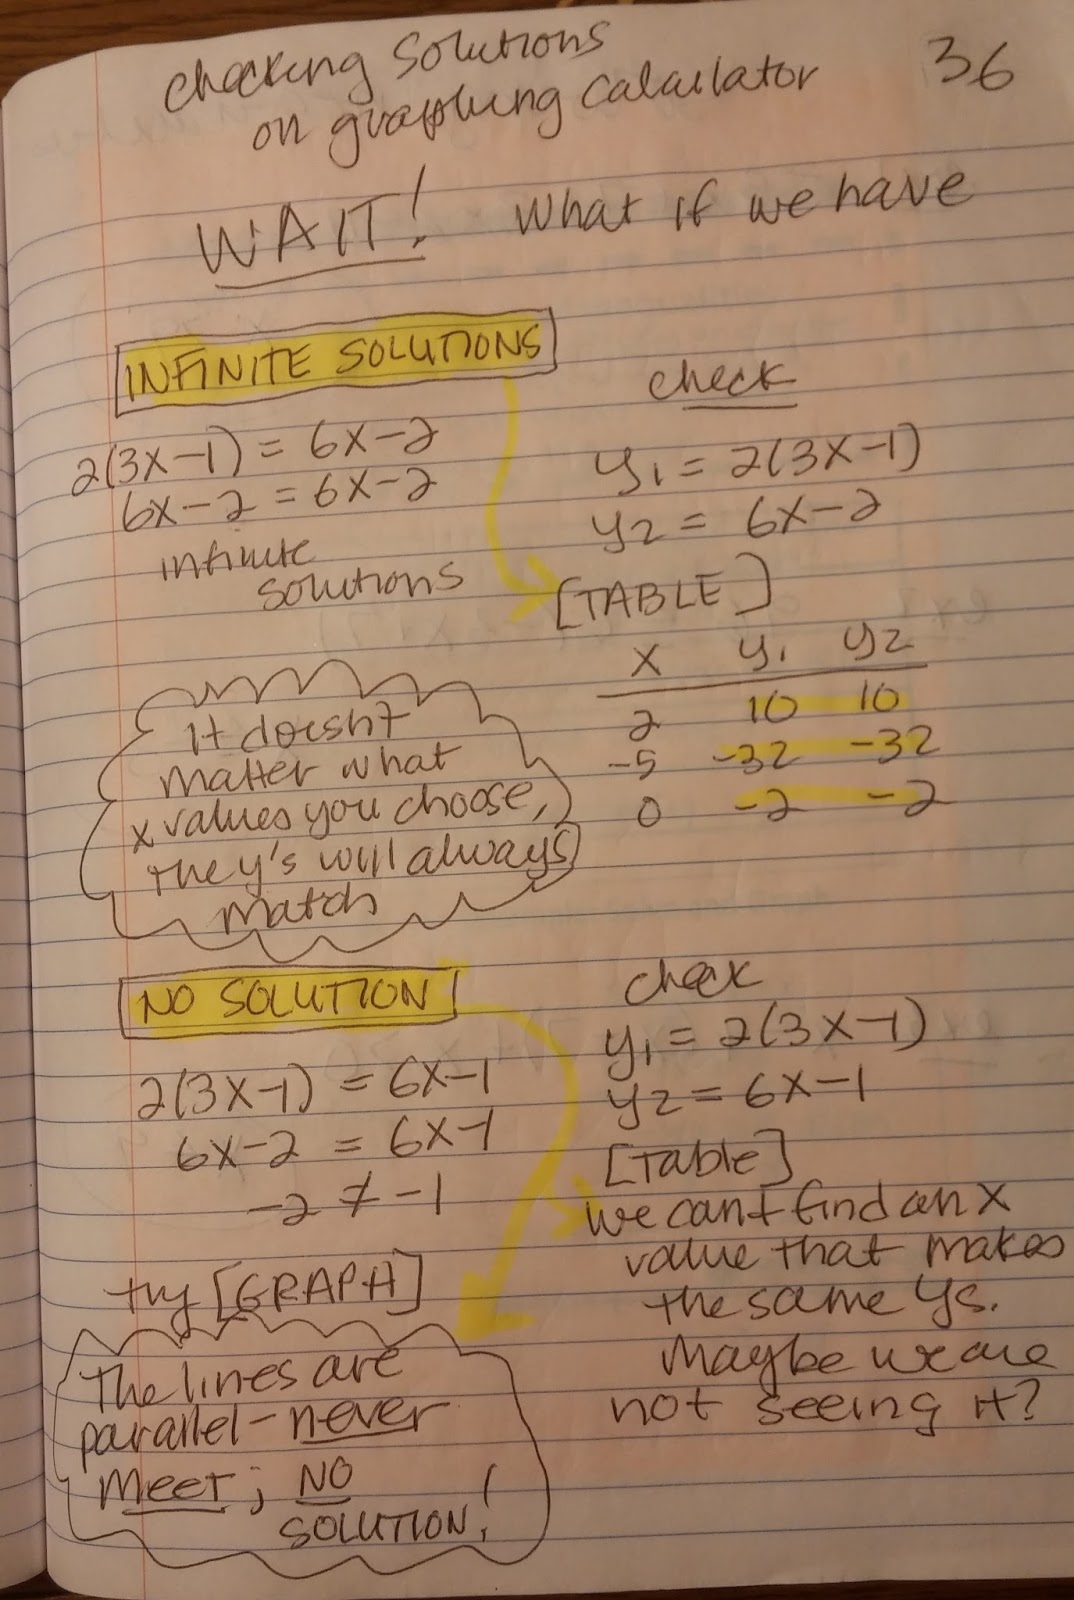 checking solutions
on graphing calculator
36
WAIT! What if we have
INFINITE SOLUTIONS
2(3x-1) = 6x-2
6x-2 = 6x-2
infinite
solutions
check
y1 = 2(3x-1)
y2 = 6x-2
[TABLE]
x y1 y2
2 10 10
-5 -32 -32
0 -2 -2
It doesn't
matter what
x values you choose,
the y's will always
match
NO SOLUTION
2(3x-1) = 6x-1
6x-2 = 6x-1
-2 ≠ -1
try [GRAPH]
The lines are
parallel - never
meet; NO
SOLUTION!
check
y1 = 2(3x-1)
y2 = 6x-1
[Table]
we can't find an x
value that makes
the same ys.
Maybe we are
not seeing it?